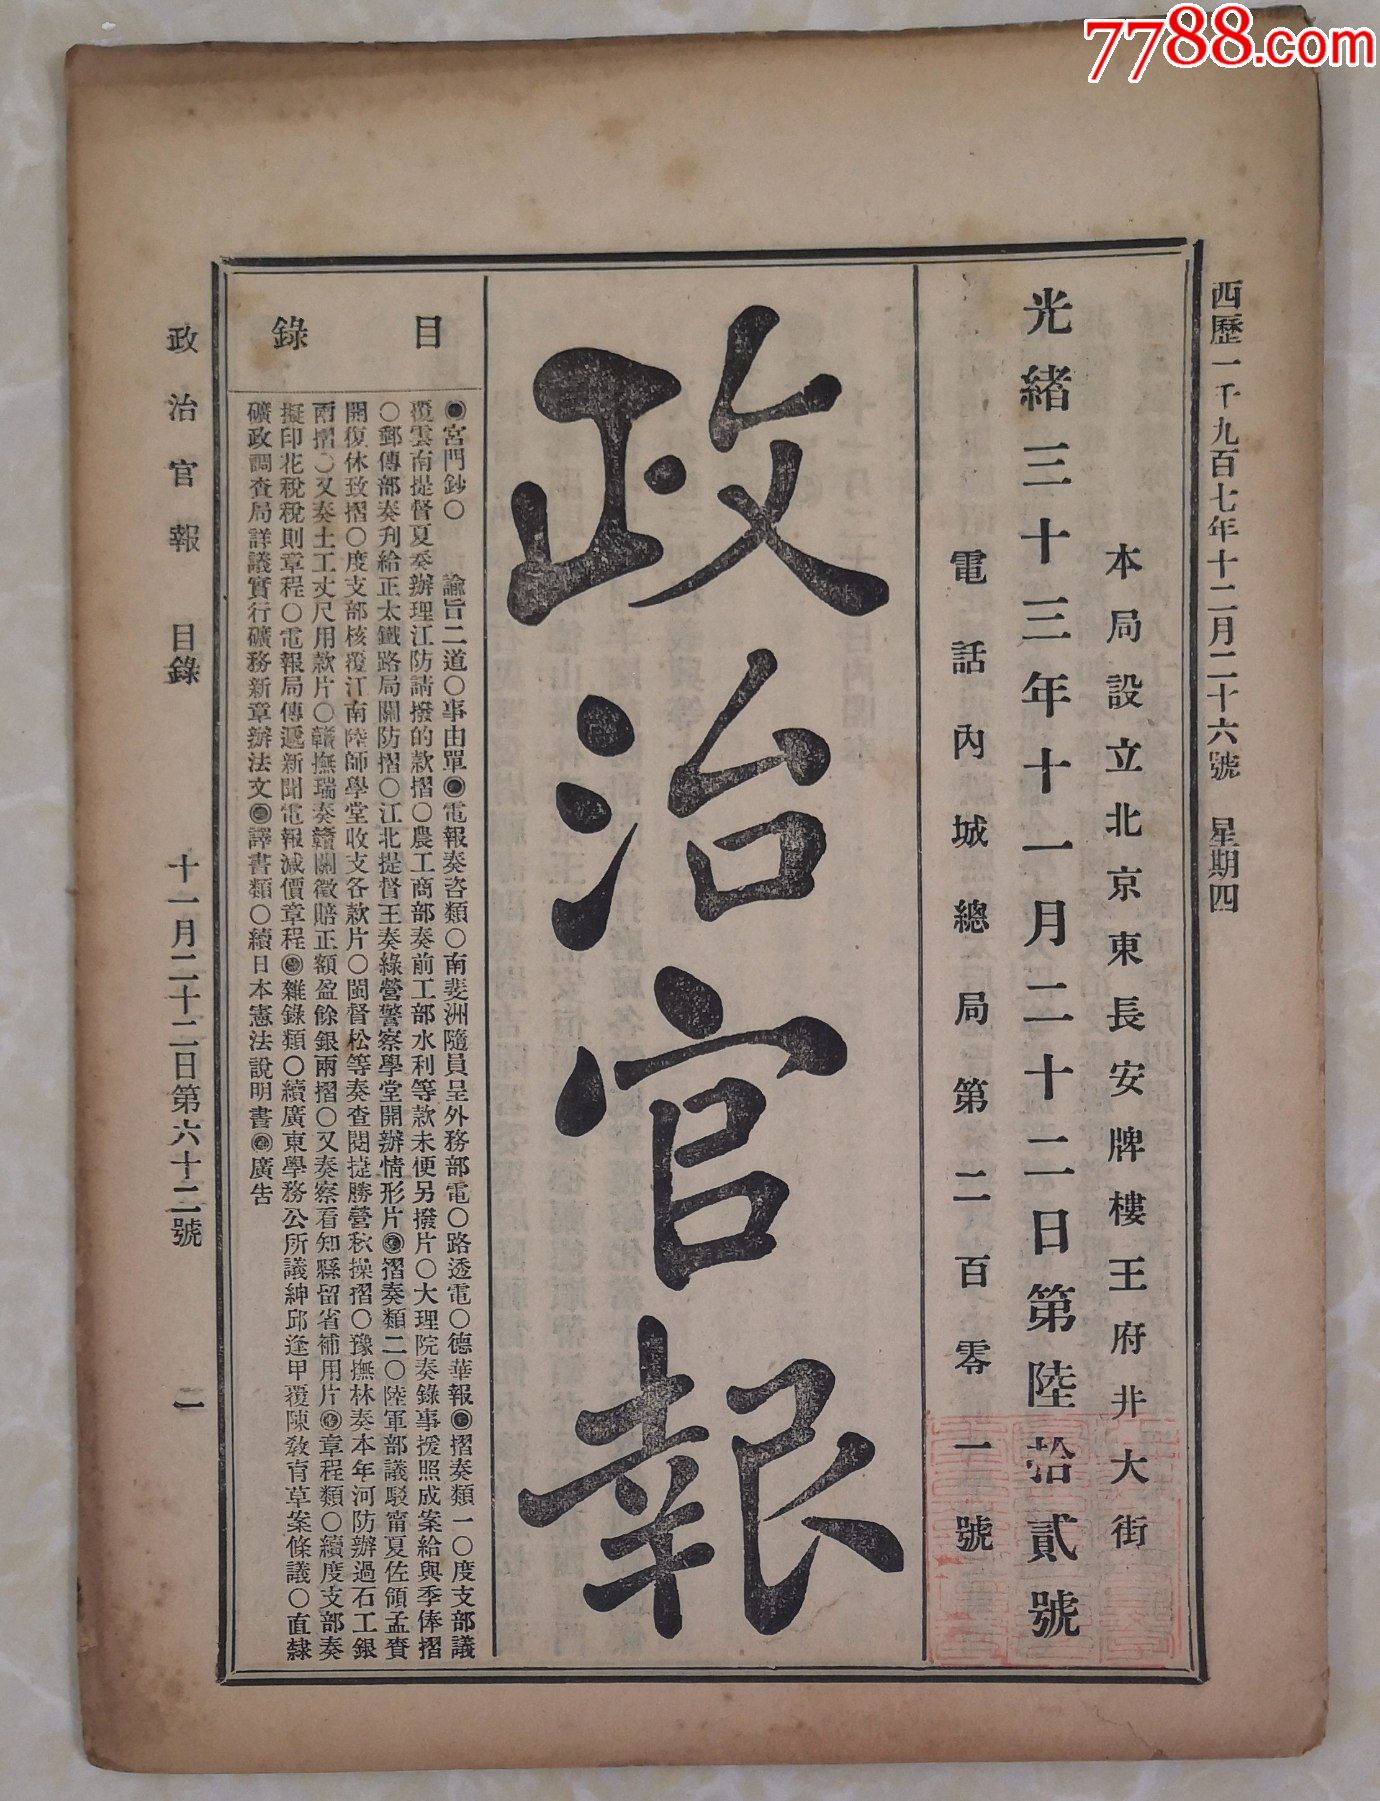 7788.com
西歷一千九百七年十二月二十六號　星期四
本局設立北京東長安牌樓王府井大街
光緒三十三年十一月二十二日第陸拾貳號
電話內城總局第二百零一號
政治官報
目錄
◉宮門鈔○　諭旨二道○事由單◉電報奏咨類○南斐洲隨員呈外務部電○路透電○德華報◉摺奏類一○度支部議
覆雲南提督夏奏辦理江防請撥的款摺○農工商部奏前工部水利等款未便另撥片○大理院奏錄事援照成案給與季俸摺
○郵傳部奏刋給正太鐵路局關防摺○江北提督王奏綠營警察學堂開辦情形片◉摺奏類二○陸軍部議駁甯夏佐領孟賚
開復休致摺○度支部核覆江南陸師學堂收支各款片○閩督松等奏查閱捷勝營秋操摺○豫撫林奏本年河防辦過石工銀
兩摺○又奏土工丈尺用款片○贛撫瑞奏贛關徵賠正額盈餘銀兩摺○又奏察看知縣留省補用片◉章程類○續度支部奏
擬印花稅稅則章程○電報局傳遞新聞電報減價章程◉雜錄類○續廣東學務公所議紳邱逢甲覆陳敎育草案條議○直隸
礦政調查局詳議實行礦務新章辦法文◉譯書類○續日本憲法說明書◉廣告
政治官報　目錄　十一月二十二日第六十二號　一